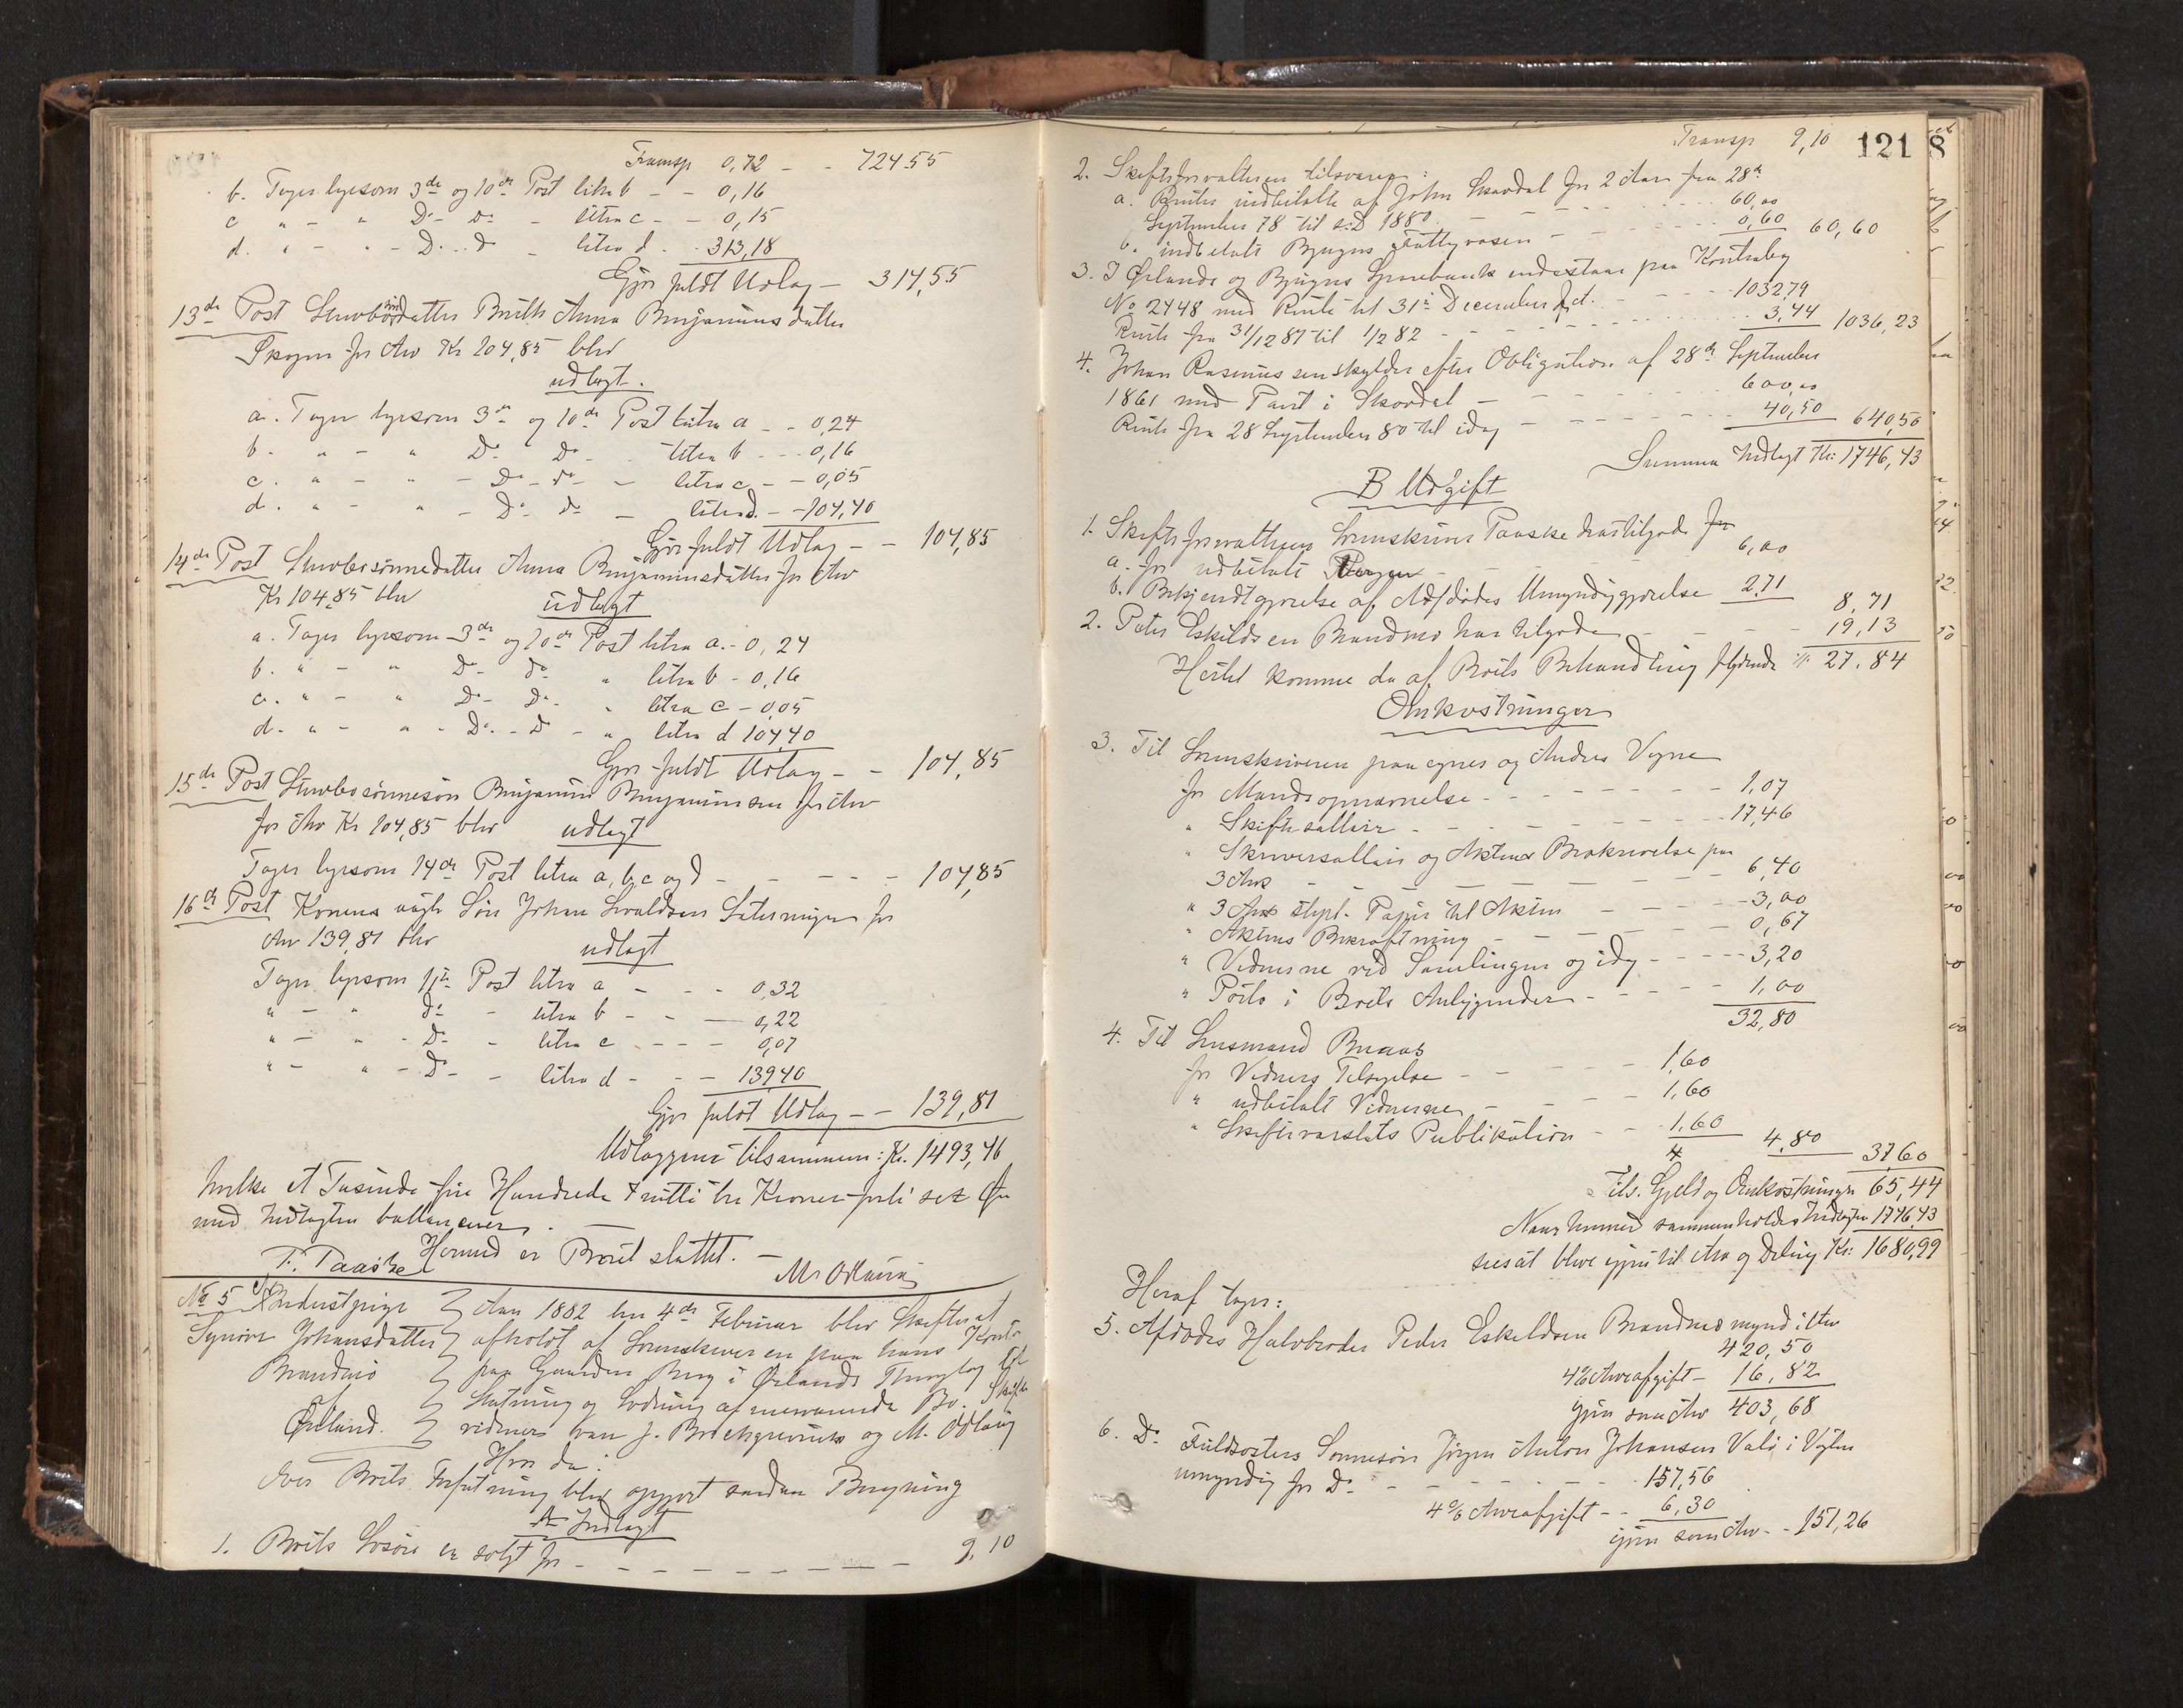 Transp 0,72 - - 724.55
b. Tager ligesom 3de og 10de Post litra b - - 0,16
c " - " Do - do - litra c - - 0,15
d. " - " - Do - do litra d - 313,18
Gjør fuldt Udlæg - 314,55
13de Post datter Anna Benjaminsdatter
Skogen for Arv Kr 104,85 blev
udlagt.
a. Tager ligesom 3de og 10de Post litra a - - 0,24
b. " - " Do do - litra b - - - 0,16
c. " - " - Do - do - litra c - - 0,05
d. " - " - Do do - litra d. - - 104,40
Gjør fuldt Udlæg - - 104,85
14de Post Stervbosønnedatter Anna Benjaminsdatter for Arv
Kr 104,85 blev udlagt
a. Tager ligesom 3de og 10de Post litra a. - 0,24
b. " - " Do do " litra b - 0,16
c. " - " Do do " litra c - 0,05
d. " - " - Do - do - " litra d 104,40
Gjør fuldt Udlæg - - 104,85
15de Post Stervbosønnesøn Benjamin Benjaminsen for Arv
for Arv Kr 104,85 blev udlagt
Tager ligesom 14de Post litra a, b, c og d - - - - 104,85
16de Post Konens Søn Johan for
Arv 139,81 blev udlagt
Tager ligesom 11te Post litra a - - - 0,32
" - " do - litra b - - - 0,22
" - " - Do - litra c - - - 0,07
" - " - Do - litra d - - - 139,40
Gjør fuldt Udlæg - - 139,81
Udlæggene tilsammen: Kr. 1493,46
hvilke et Tusinde fire Hundrede & nitti tre Kroner firti sex Øre
med Indtægten ballancerer.
Hermed er Boet sluttet. -
F. Paaske M. Odlaug
No 5 Aar 1882 den 4de Februar blev Skifteret
Synøve Johansdatter afholdt af Sorenskriveren paa hans Kontor
Brandmo paa Gaarden Berg i Ørlands Thinglag til
af Slutning og Lodning af nærværende Bo. Skifte
Ørland. vidner var J. Borchgrevink og M. Odlaug
Hvor da:
Over Boets Forfatning blev opgjort saadan Beregning
A Indtægt
1. Boets Løsøre er solgt for - - - - - - - - 9,10
Transp 9,10 121 8
2. Skifteforvalteren tilsvarer:
a. Renter indbetalte af John Skavdal for 2 Aar fra 28de
September 78 til s: D 1880 - - - 60,00
b. indbetalt Bjugns Fattigvæsen - - - 0,60 60,60
3. I Ørlands og Bjugns Sparebank indestaar paa Kontrabog
No 2448 med Rente til 31te December f. A. - - - 1032,79
Rente fra 31/12 81 til 1/2 82 - - - 3,44 1036,23
4. Johan Rasmussen skylder efter Obligation af 28de September
1861 med Pant i Skavdal - - - 600,00
Rente fra 28 September 80 til idag - - - 40,50 640,50
Summa Indtægt Kr: 1746,43
B Udgift
1. Skifteforvalteren Sorenskriver Paaske har tilgode for
a. for udbetalt - - - 6,00
b. Bekjendtgjørelse af Afdødes Umyndiggjørelse 2,71 8,71
2. Peter Eskildsen Brandmo har tilgode - - - 19,13
Hertil komme de af Boets Behandling flydende % 27.84
Omkostninger
3. Til Sorenskriveren paa egnes og Andres Vegne
for Mandsopnævnelse - - - 1,07
" Skiftesallair - - - 17,46
" Skriversallair og Aktens Beskrivelse paa
3 Ark - - - 6,40
" 3 Ark stpl. Papir til Akten - - - 3,00
" Aktens Bekræftning - - - 0,67
" Vidnerne ved Samlingen og idag - - - 3,20
" Porto i Boets Anliggender - - - 1,00
32,80
4. Til Lensmand
for Vidners Tilsigelse - - - 1,60
" udbetalt Vidnerne - - - 1,60
" Skiftevarslets Publikation - - 1,60 4,80 37,60
Tils. Gjeld og Omkostninger 65,44
Naar hermed sammenholdes Indtægten 1746,43
sees at blive igjen til Arv og Deling Kr: 1680,99
Heraf tages:
5. Afdødes Halvbroder Peder Eskildsen Brandmo mynd: Arv
420,50
4% Arveafgift - 16,82
igjen som Arv 403,68
6. Do Fuldsøsters Sønnesøn Jørgen Anton Johansen Valø i Vigten
umyndig for Do - - - 157,56
4% Arveafgift - - 6,30
igjen som Arv - - 151,26